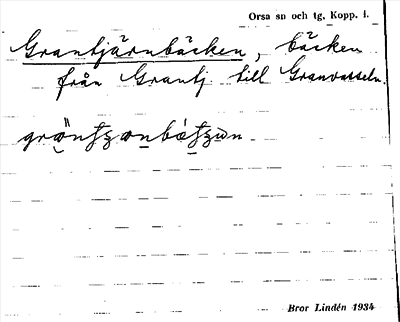 Orsa sn och tg, Kopp. l.
Grantjärnbäcken, bäcken
från Grantj. till Granvasseln.
Bror Lindén 1934